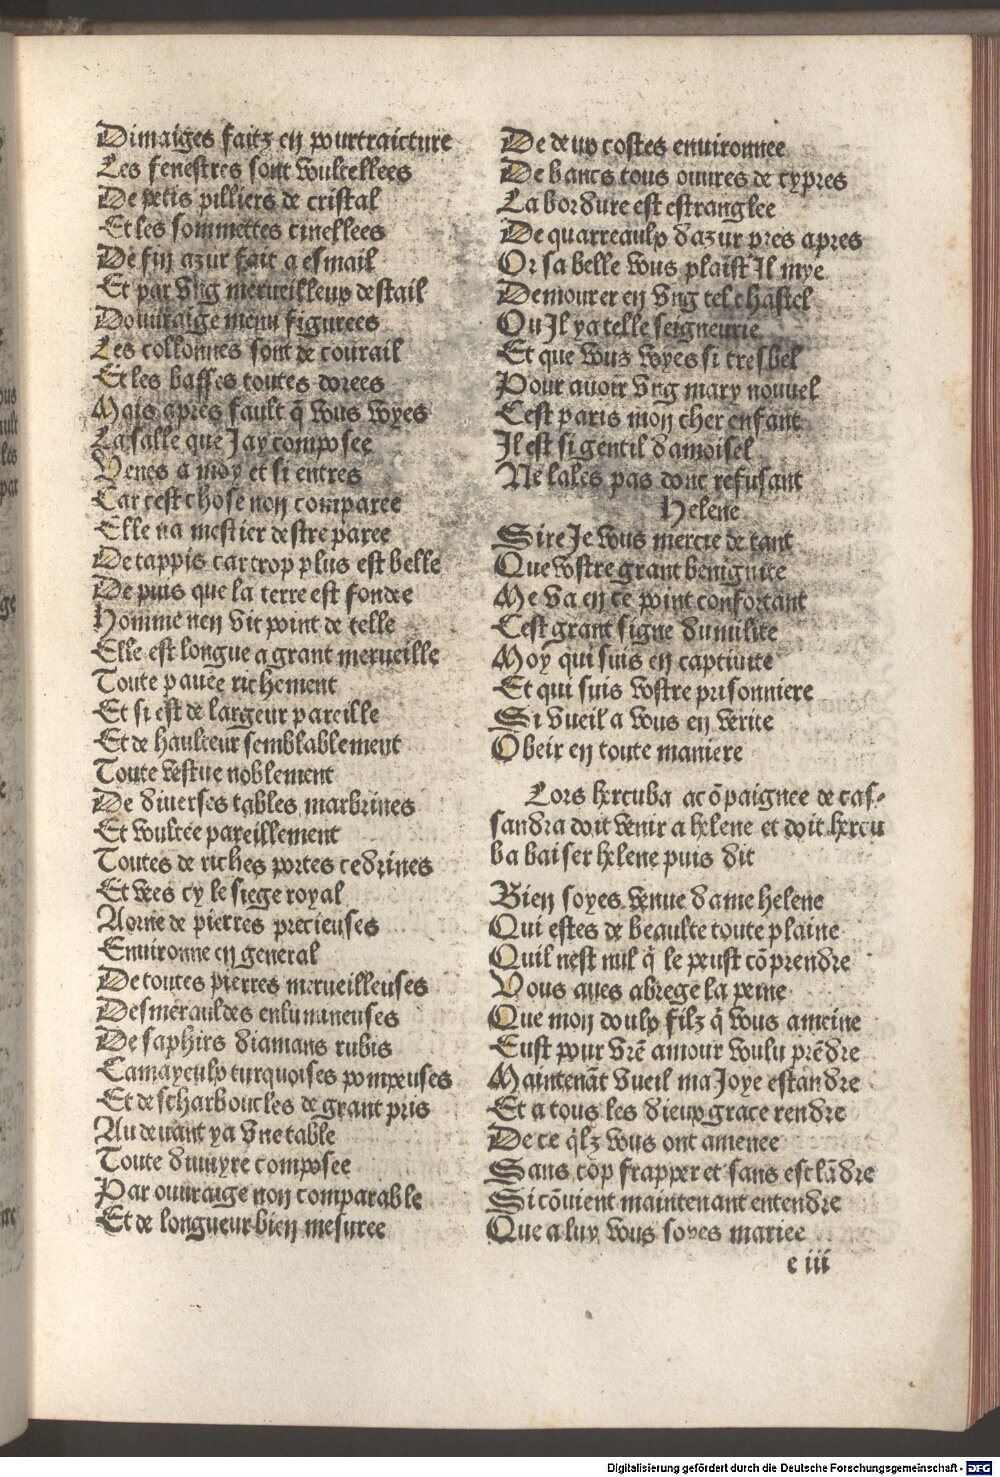 Dimaiges faitz en pourtraicture
Les fenestres sont voultellees
De petis pilliers de cristal
Et les sommettes cinellees
De fin azur fait a esmail
Et par vng merueilleux destail
Douuraige menu figurees
Les collonnes sont de courail
Et les basses toutes dorees
Mais apres fault q̄ vous voyes
La salle que Jay composee
Venes a moy et si entres
Car cest chose non comparee
Elle na mestier destre paree
De tappis car trop plus est belle
De puis que la terre est fondee
Homme nen vit point de telle
Elle est longue a grant merueille
Toute pauee richement
Et si est de largeur pareille
Et de haulteur semblablement
Toute vestue noblement
De diuerses tables marbrines
Et voultee pareillement
Toutes de riches portes cedrines
Et vees cy le siege royal
Aorne de pierres precieuses
Enuironne en general
De toutes pierres merueilleuses
Desmerauldes enlumineuses
De saphirs diamans rubis
Camayeulx turquoises pompeuses
Et descharboucles de grant pris
Au deuant ya vne table
Toute diuuyre composee
Par ouuraige non comparable
Et de longueur bien mesuree
De deux costes enuironnee
De bancs tous ouures de cypres
La bordure est estranglee
De quarreaulx dazur pres apres
Or sa belle vous plaist Il mye
Demourer en vng tel chastel
Ou Il ya telle seigneurie
Et que vous voyes si tresbel
Pour auoir vng mary nouuel
Cest paris mon cher enfant
Il est si gentil damoisel
Ne lales pas donc refusant
Helene
Sire Je vous mercie de tant
Que vostre grant benignite
Me va en ce point confortant
Cest grant signe dumilite
Moy qui suis en captiuite
Et qui suis vostre prisonniere
Si vueil a vous en verite
Obeir en toute maniere
Lors hercuba acōpaignee de cas-
sandra doit venir a helene et doit hercu
ba baiser helene puis dit
Bien soyes venue dame helene
Qui estes de beaulte toute plaine
Quil nest nul q̄ le peust cōprendre
Vous aues abrege la peine
Que mon doulx filz q̄ vous ameine
Eust pour vr̄e amour voulu prēdre
Maintenāt vueil ma Joye estandre
Et a tous les dieux grace rendre
De ce q̄lz vous ont amenee
Sans cop frapper et sans esclādre
Si cōuient maintenant entendre
Que a luy vous soyes mariee
e iii
Digitalisierung gefördert durch die Deutsche Forschungsgemeinschaft - DFG